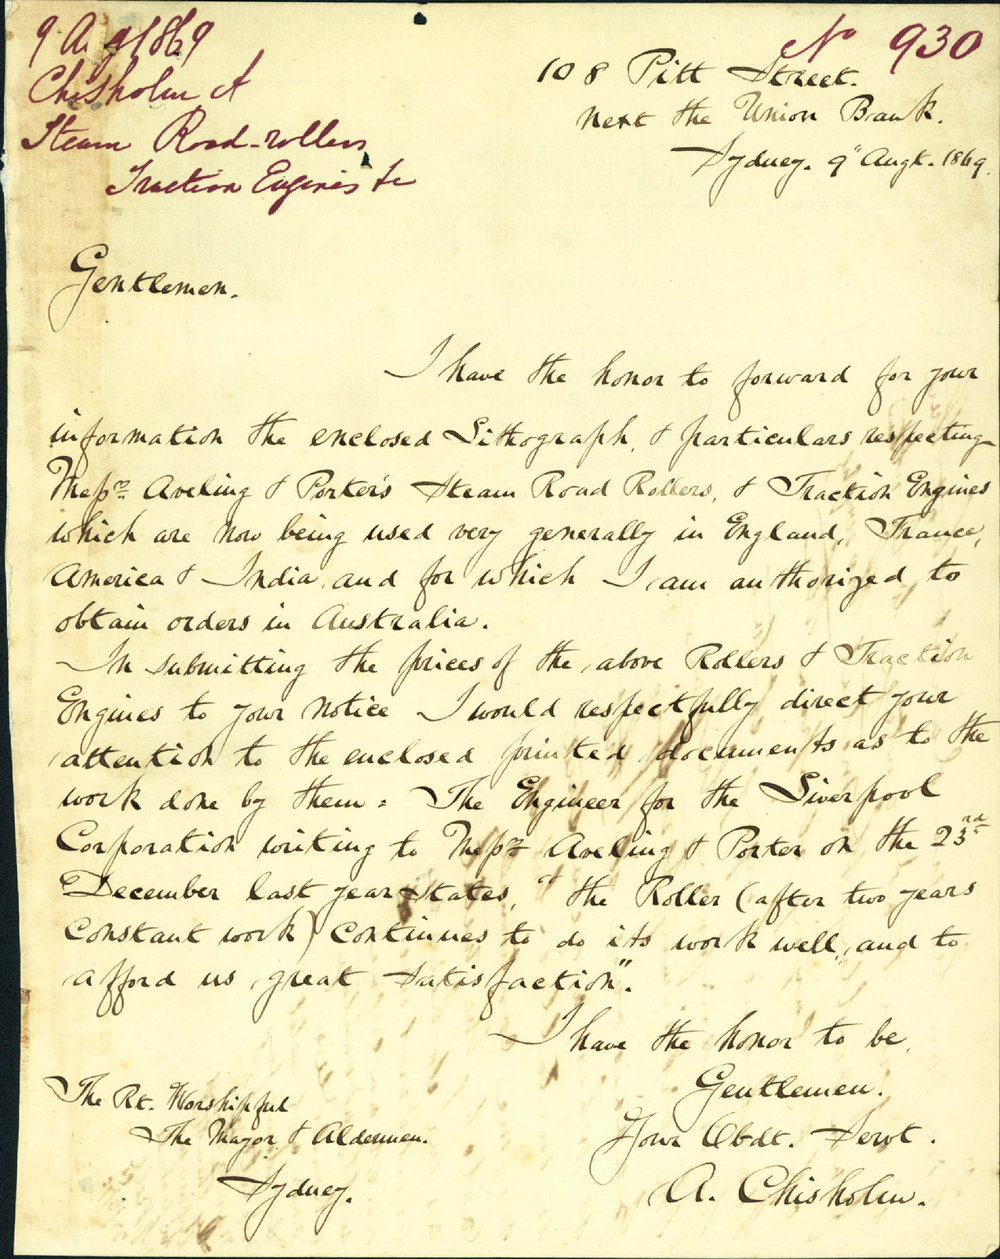 9 Augt 1869
Chisholm A
Steam Road-rollers
Traction Engines &c
No 930
108 Pitt Street.
next the Union Bank.
Sydney. 9" Augt. 1869.
Gentlemen.
I have the honor to forward for your
information the enclosed Lithograph, & particulars respecting
Messrs. Aveling & Porter's Steam Road Rollers, & Traction Engines
which are now being used very generally in England, France,
America & India, and for which I am authorized to
obtain orders in Australia.
In submitting the prices of the above Rollers & Traction
Engines to your notice I would respectfully direct your
attention to the enclosed printed documents as to the
work done by them = The Engineer for the Liverpool
Corporation writing to Messrs. Aveling & Porter on the 23rd
December last year states, "the Roller (after two years
constant work) continues to do its work well, and to
afford us great satisfaction".
I have the honor to be,
Gentlemen.
Your Obdt. Servt.
A. Chisholm.
The Rt. Worshipful
The Mayor & Aldermen.
Sydney.